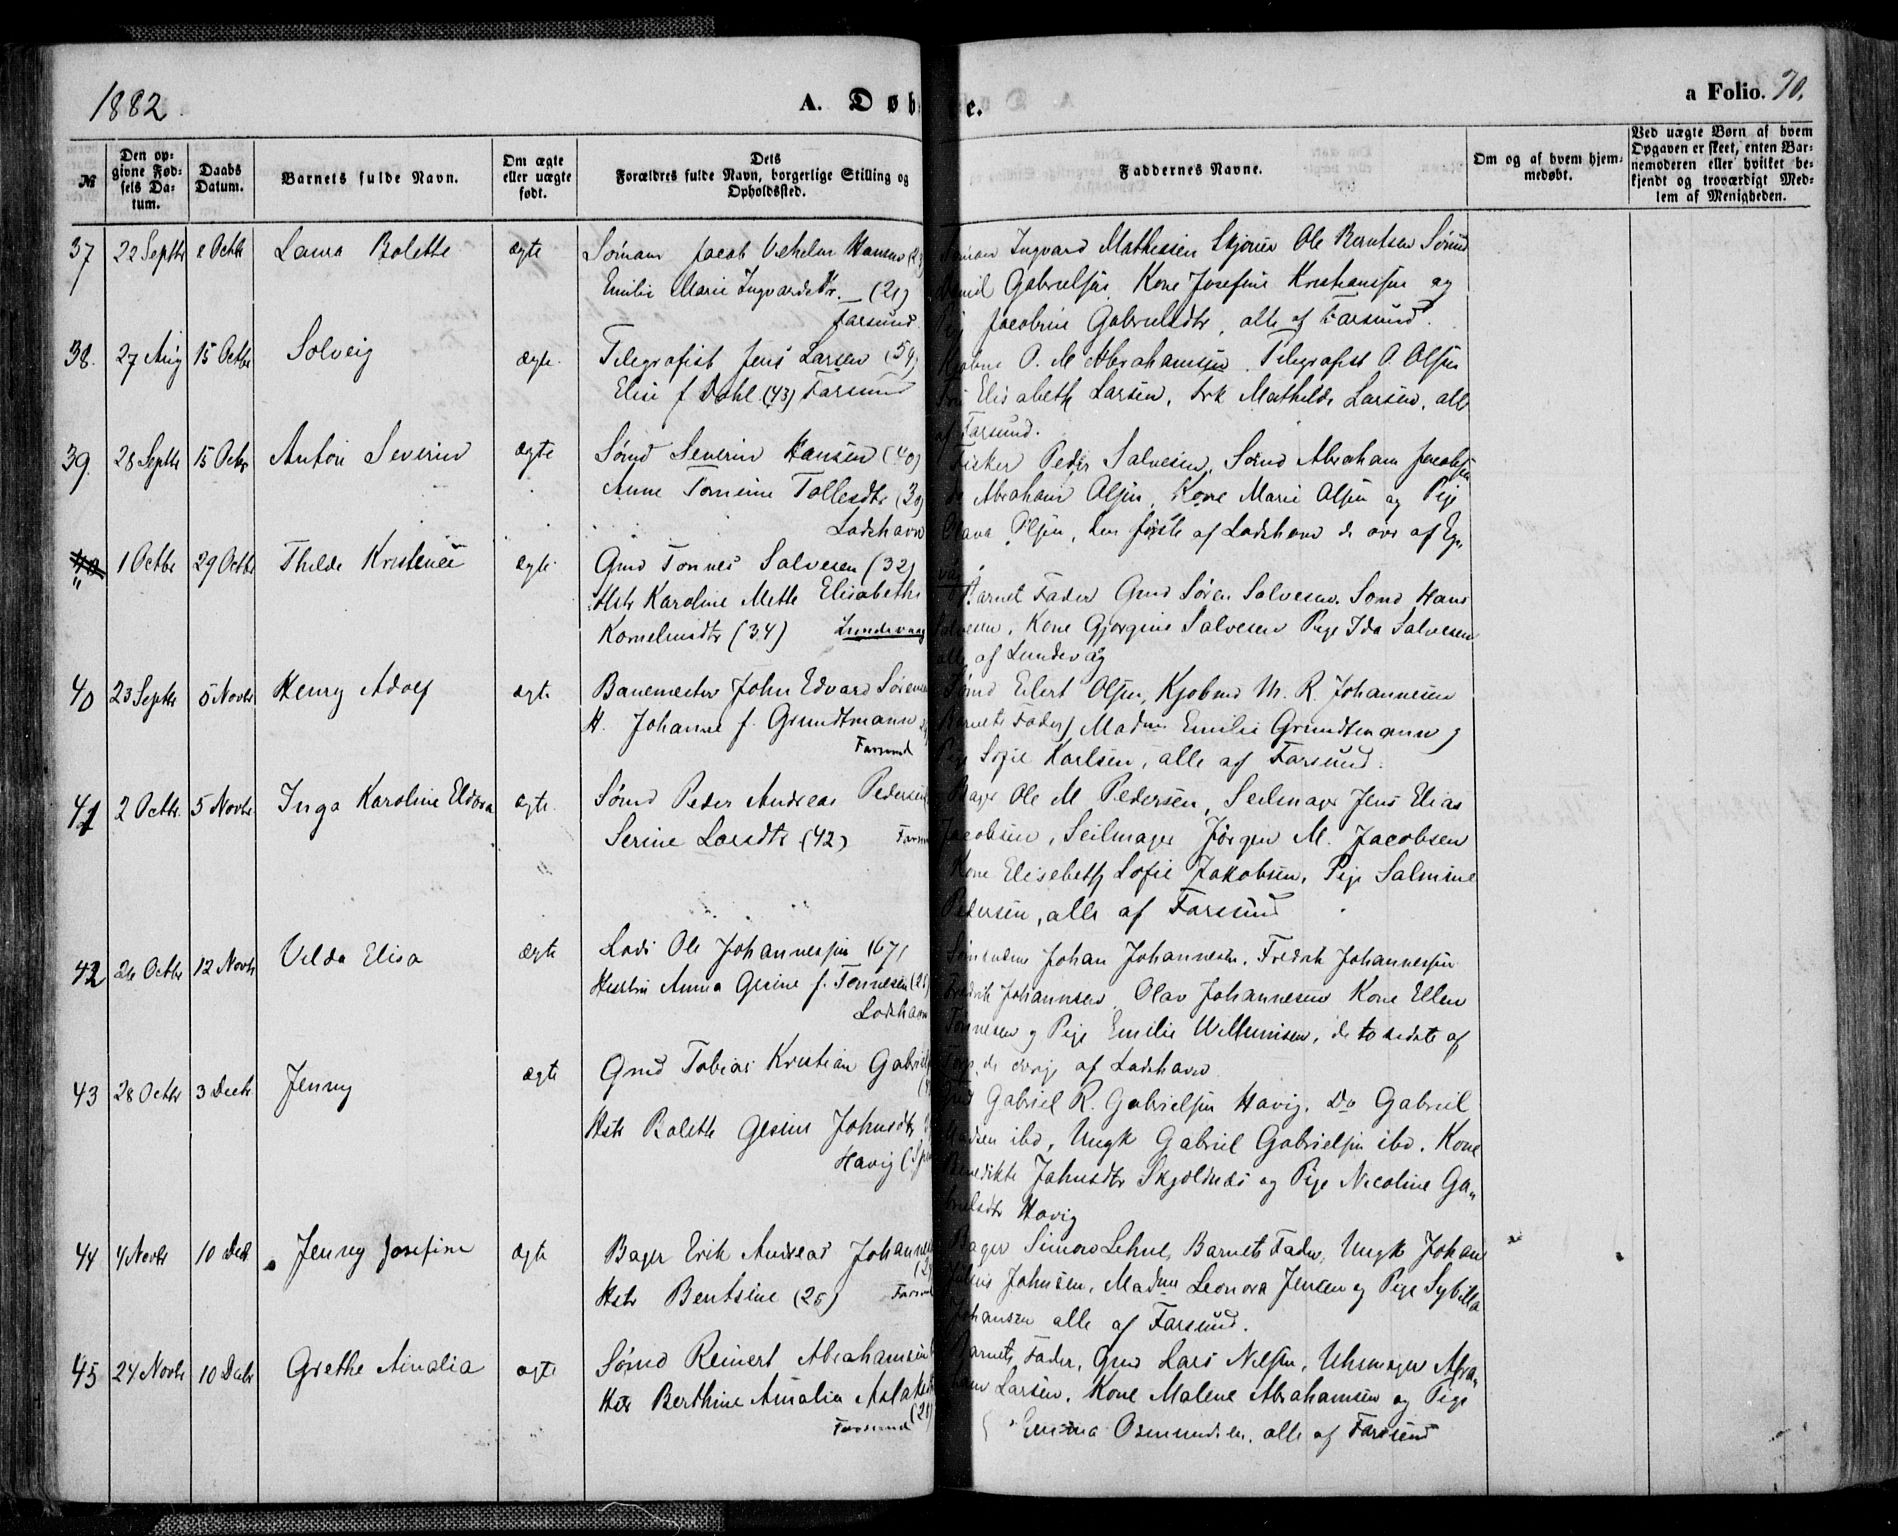 1882.
A. Døb e.
a Folio. 70.
№
Den op-
givne Fød-
sels Da-
tum.
Daabs
Datum.
Barnets fulde Navn.
Om ægte
eller uægte
født.
Dets
Forældres fulde Navn, borgerlige Stilling og
Opholdssted.
Faddernes Navne.
Om og af hvem hjem-
medøbt.
Ved uægte Børn af hvem
Opgaven er skeet, enten Bar-
nemoderen eller hvilket be-
kjendt og troværdigt Med-
lem af Menigheden.
37 22 Septbr Octbr Laura Bolette ægte Sømand Jacob Vilhelm Hansen
Emilie Marie Ingvardsdtr. (21)
Farsund
Ingvard Mathiesen Skjørner Ole Berntsen Sømd
Gabrielsen, Kone Josefine Kristiansen og
Jacobine Gabrielsdtr, alle af Farsund.
38. 27 Aug 15 Octbr Solveig ægte. Telegrafist Jens Larsen (54)
Elise f Dahl (43) Farsund
O. M Abrahamsen. Telegrafist O. Olsen
Elisabeth Larsen, Frk Mathilde Larsen, alle
af Farsund.
39. 28 Septbr 15 Octbr Anton Severin ægte Sømd Severin Hansen (40)
Anne Tomine Tollesdtr (30)
Lodshavn
Fisker Peder Salvesen, Sømd Abraham Jacobsen
do Abraham Olsen, Kone Marie Olsen og Pige
Olava Olsen, den første af Lodshavn de øvr af Eg„
våg
„ 1 Octbr 29 Octbr Thilde Kristine ægte Gmd Tønnes Salvesen (32)
Hstr Karoline Mette Elisabeth
Korneliusdtr (34) Lundevaag
Barnets Fader Gmd Søren Salvesen. Sømd Hans
Salvesen, Kone Gjorgine Salvesen Pige Ida Salvesen
alle af Lundevåg
40 23 Septbr 5 Novbr Henry Adolf ægte Banemester John Edvard Sørensen
H. Johanne f. Grundtmann
Farsund
Sømd Eilert Olsen, Kjøbmd M. R. Johannesen
Barnets Fader, Madm Emilie Grundtmann og
Pige Sofie Karlsen, alle af Farsund.
41 2 Octbr. 5 Novbr. Inga Karoline Eldora ægte. Sømd Peder Andreas Pedersen
Serine Larsdtr (42)
Bager Ole M Pedersen, Seilmager Jens Elias
Jacobsen, Seilmager Jørgen M. Jacobsen
Kone Elisebeth Sofie Jakobsen, Pige Salmine
Pedersen, alle af Farsund
42 26 Octbr 12 Novbr Velda Elisa ægte Lods Ole Johannesen
Hustru Anna Gesine f. Tønnesen
Lodshavn
Sømændene Johan Johannesen, Fredrik Johannesen
Fredrik Johannsen Olav Johannesen Kone Ellen
Tønnesen og Pige Emilie Willumsen, de to sidste af
de øvrige af Lodshavn
43 28 Octbr 3 Decbr Jenny ægte Gmd Tobias Kristian Gabriels
Hstr Bolette Gesine Johnsdtr
Havig
Gmd Gabriel R. Gabrielsen Havig. Do Gabriel
Madsen ibd, Ungk Gabriel Gabrielsen ibd. Kone
Benedikte Jahnsdtr Skjoldnes og Pige Nicoline Ga„
brielsdtr Havig
44 4 Novbr 10 Decbr Jenny Josefine ægte Bager Erik Andreas Johannes
Hstr Bentsine (26) Farsund
Bager Simon Lehne, Barnets Fader, Ungk Johan
Julius Johnsen, Madm Leonora Jensen og Pige Sybilla
Johansen alle af Farsund.
45 24 Novbr 10 Decbr Grethe Amalia ægte Sømd Reinert Abrahamsen
Hstr Berthine Amalia Aslaksdtr
Farsund (21)
Barnets Fader, Gmd Lars Nilsen, Uhrmager Abra„
ham Larsen, Kone Malene Abrahamsen og Pige
Emma Osmundsen, alle af Farsund